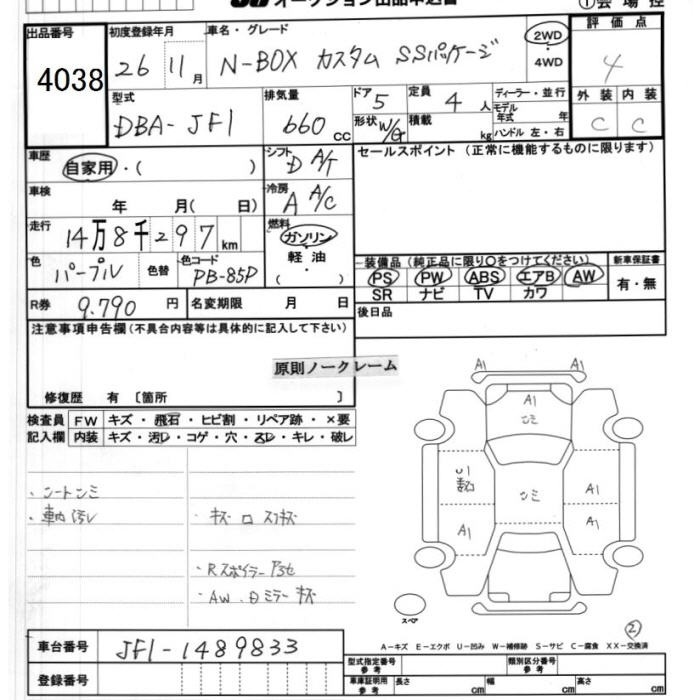 オークション出品申込書
①会場控
出品番号 4038
初度登録年月 26 11月
車名・グレード N-BOX カスタム SSパッケージ
2WD・4WD
評価点 4
外装 C 内装 C
型式 DBA-JF1
排気量 660cc
ドア 5
定員 4人
ディーラー・並行
形状 W/G
積載 kg
モデル年式 年
ハンドル 左・右
車歴 自家用・( )
シフト D A/T
セールスポイント(正常に機能するものに限ります)
車検 年 月( 日)
冷房 A A/C
走行 14万8千297km
燃料 ガソリン・軽油・( )
色 パープル 色替 色コード PB-85P
装備品(純正品に限り○をつけてください)
新車保証書
PS PW ABS エアB AW
有・無
SR ナビ TV カワ
R券 9.790円
名変期限 月 日
後日品
注意事項申告欄(不具合内容等は具体的に記入して下さい)
原則ノークレーム
修復歴 有〔箇所 〕
検査員記入欄
FW キズ・飛石・ヒビ割・リペア跡・×要
内装 キズ・汚レ・コゲ・穴・スレ・キレ・破レ
・シートシミ
・車内汚レ
・キズ ロ スリキズ
・Rスポイラー
・AW、Bミラーキズ
A1 A1
A1
シミ
U1
A1
シミ
A1
A1
スペア
②
A-キズ E-エクボ U-凹み W-補修跡 S-サビ C-腐食 XX-交換済
車台番号 JF1-1489833
登録番号
型式指定番号参考
類別区分番号参考
車庫証明用参考 長さ cm 幅 cm 高さ cm